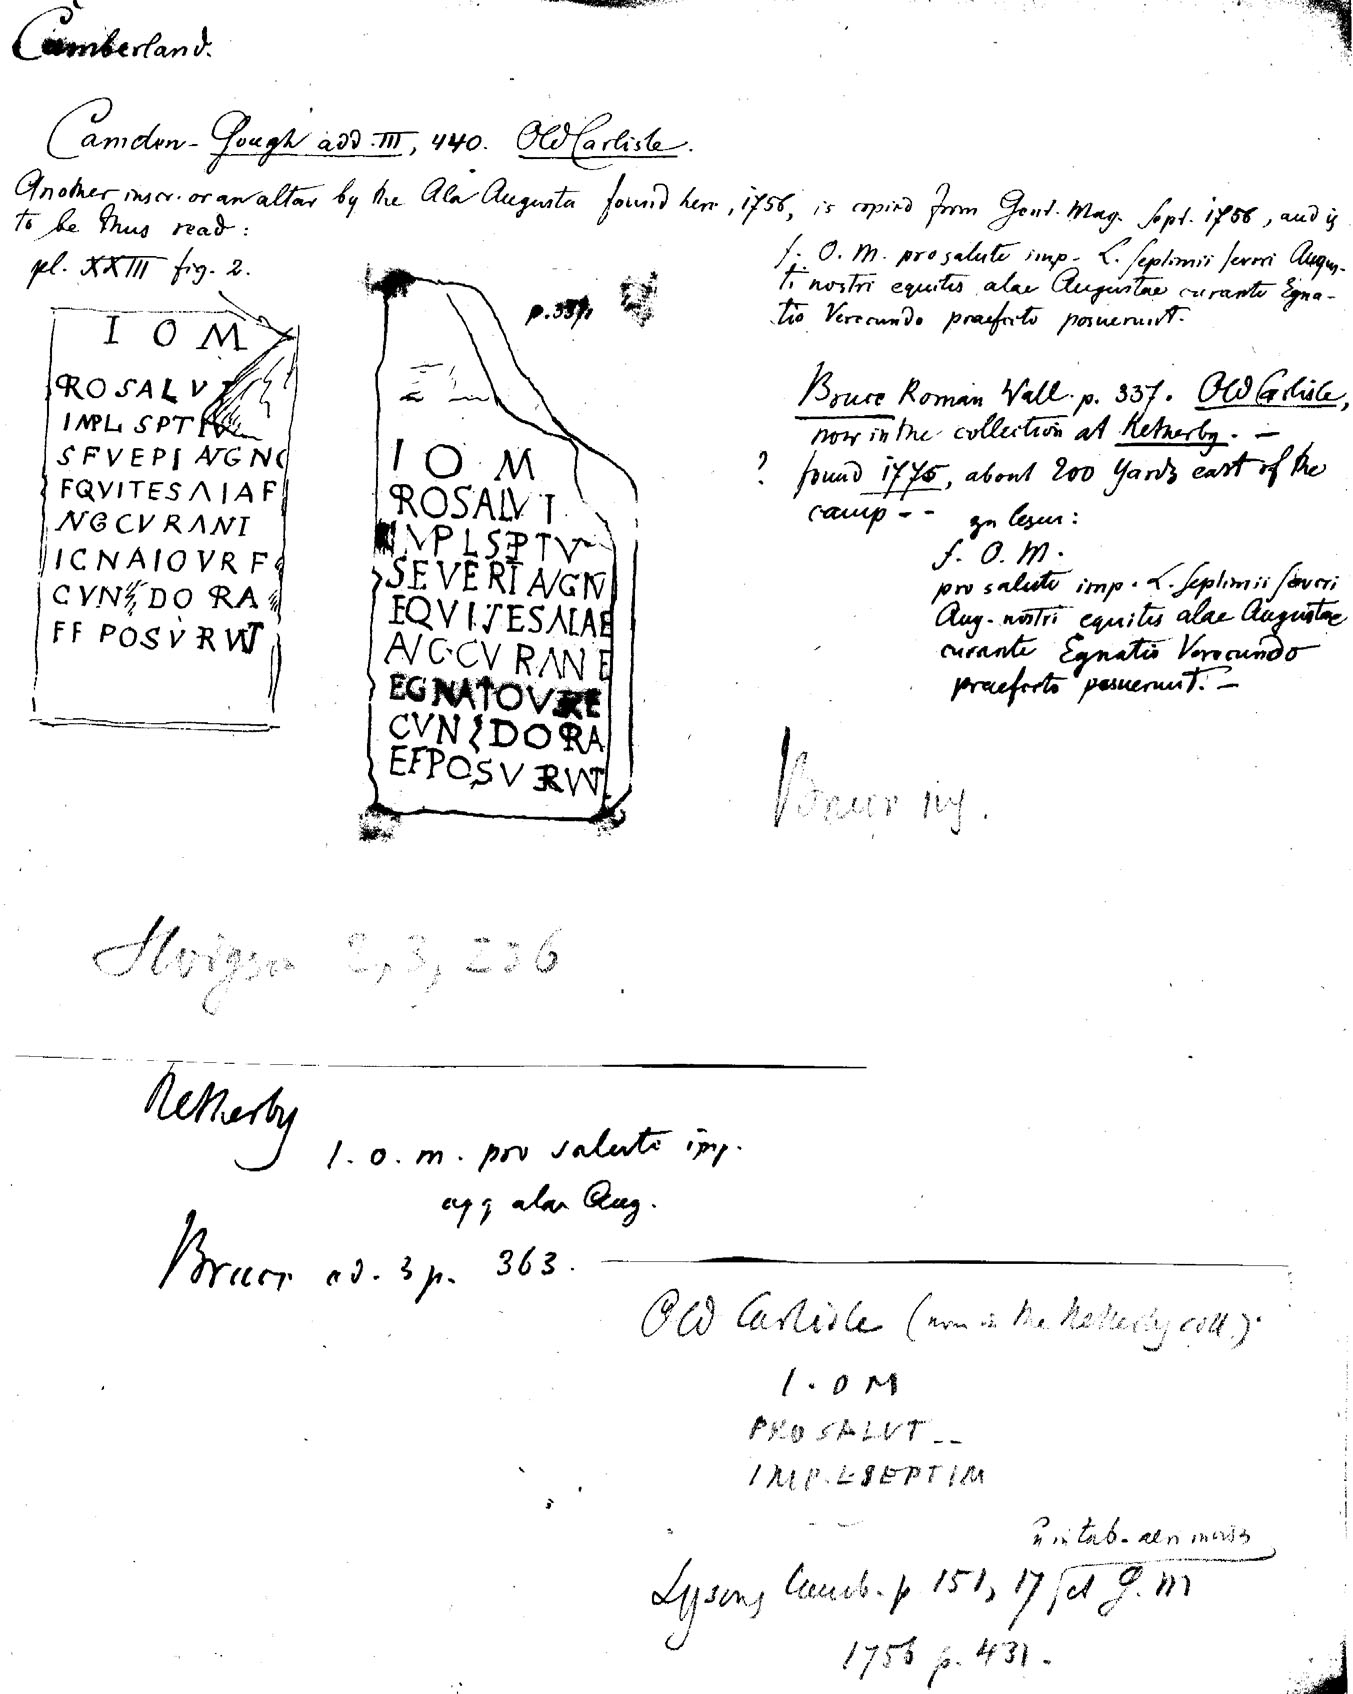 Cumberland.
Camden-Gough add. III, 440. Old Carlisle.
Another inscr. or an altar by the Ala Augusta found here, 1756, is copied from Gent. Mag. Sept. 1756, and is
to be thus read:
pl. XXIII fig. 2.
I. O. M. pro salute imp. L. Septimii Severi Augus-
ti nostri equites alae Augustae curante Egna-
tio Verecundo praefecto posuerunt.
I O M
ROSALVT
IMPL SPTIV
SFVEPI AVGN
FQVITESΛIAF
NGCVRANI
ICNAIOVRF
CVN DO RA
FF POSVRVNT
p. 337.
I O M
ROSALVT
IMPLSEPTV
SEVERI AVGN
EQVITESΛLAE
AVG.CVRANE
EGNATOVRE
CVN DORA
EFPOSVERVNT
Bruce Roman Wall. p. 337. Old Carlisle,
now in the collection at Netherby. —
? found 1775, about 200 yards east of the
camp - - zu lesen:
I. O. M.
pro salute imp. L. Septimii Severi
Aug. nostri equites alae Augustae
curante Egnatio Verecundo
praefecto posuerunt. —
Bruce
Hodgson 2, 3, 236
Netherby
I. o. m. pro salute imp.
eqq alae Aug.
Bruce ed. 3 p. 363.
Old Carlisle (now in the Netherby coll.).
I. O M
PRO SALVT --
IMP. L SEPTIM
in tab. aen
Lysons Cumb. p 151, 17 et G. M
1756 p. 431.